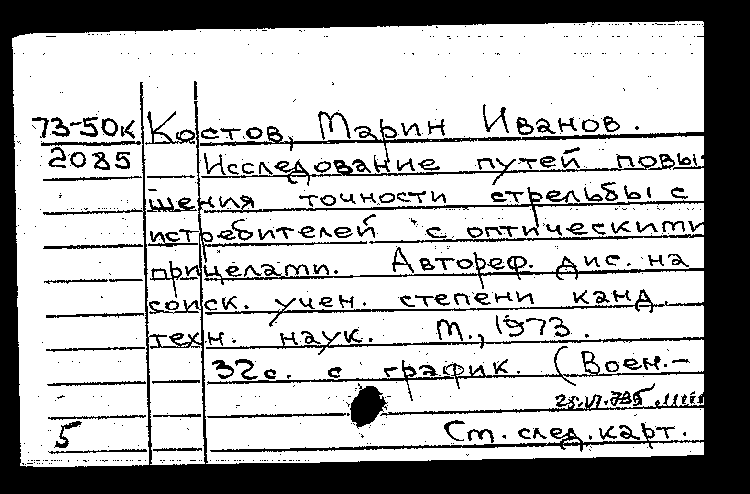 73-50к Костов, Марин Иванов.
2085 Исследование путей повы-
шения точности стрельбы с
истребителей с оптическими
прицелами. Автореф. дис. на
соиск. учен. степени канд.
техн. наук. М., 1973.
32 с. с график. (Воен.-
5 См. след. карт.